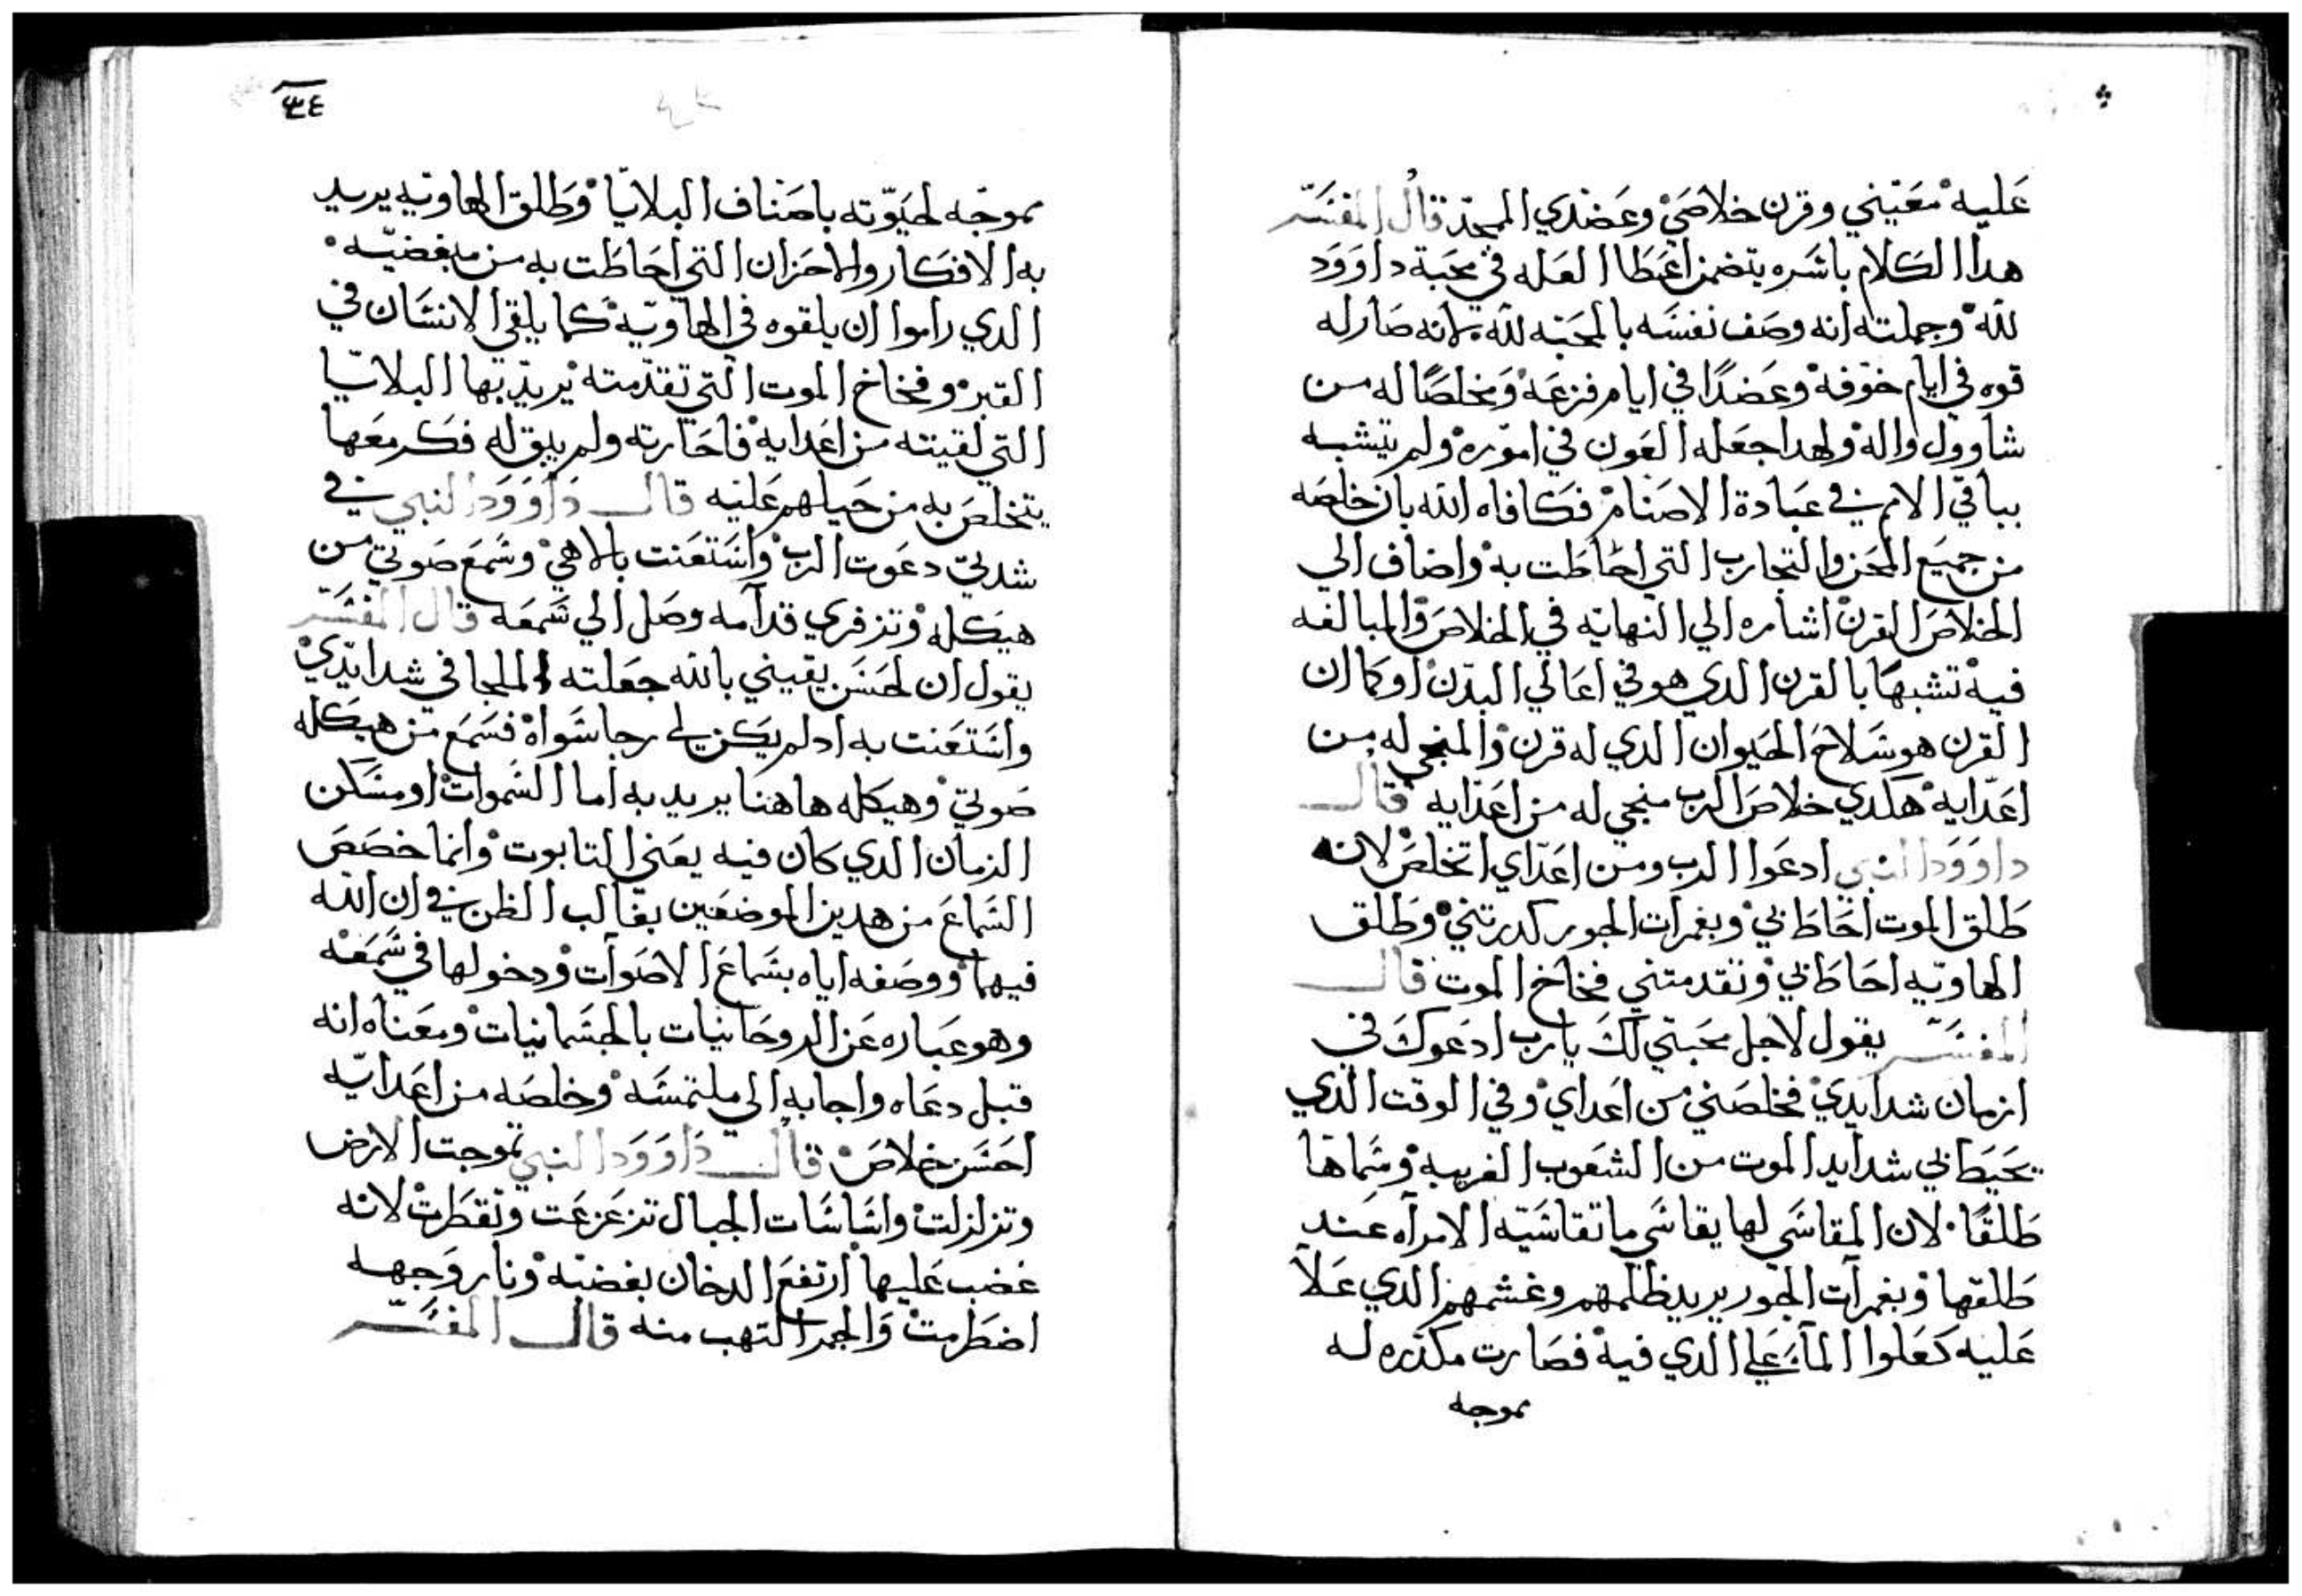 عليه معيني وقرن خلاصي وعضدي الممجد قال المفسر
هدا الكلام باسره يتضمن اعطا العله في محبة داوود
لله وجملته انه وصف نفسه بالمحبه لله لانه صار له
قوه في ايام خوفه وعضدًا في ايام فزعه ومخلصًا له من
شاوول واله ولهدا جعله العون في اموره ولم يتشبه
بباقي الامم في عبادة الاصنام فكافاه الله بان خلصه
من جميع المحن والتجارب التي احاطت به واضاف الي
الخلاص القرن اشاره الي النهايه في الخلاص والمبالغه
فيه تشبهًا بالقرن الدي هو في اعالي البدن او كما ان
القرن هو سلاح الحيوان الدي له قرن والمنجي له من
اعدايه هكدي خلاص الرب منجي له من اعدايه قال
داوود النبي ادعوا الرب ومن اعداي اتخلص لان
طلق الموت احاط بي وبغمرات الجور كدرتني وطلق
الهاويه احاط بي وتقدمتني فخاخ الموت قال
المفسر يقول لاجل محبتي لك يا رب ادعوك في
ازمان شدايدي فخلصني من اعداي وفي الوقت الدي
يحيط بي شدايد الموت من الشعوب الغريبه وسماها
طلقًا لان المقاسي لها يقاسي ما تقاسيه الامراه عند
طلقها وبغمرات الجور يريد ظلمهم وغشمهم الدي علا
عليه كعلوا الماء علي الدي فيه فصارت مكدره له
موجه
٣٤
موجه لحيوته باصناف البلايا وطلق الهاويه يريد
به الافكار والاحزان التي احاطت به من مبغضيه
الدي راموا ان يلقوه في الهاويه كما يلقي الانسان في
القبر وفخاخ الموت التي تقدمته يريد بها البلايا
التي لقيته من اعدايه فاحارته ولم يبق له فكر معها
يتخلص به من حيلهم عليه قال داوود النبي في
شدتي دعوت الرب واستعنت بالاهي وسمع صوتي من
هيكله وتزفري قدامه وصل الي سمعه قال المفسر
يقول ان لحسن يقيني بالله جعلته الملجا في شدايدي
واستعنت به اد لم يكن لي رجا سواه فسمع من هيكله
صوتي وهيكله هاهنا يريد به اما السموات او مسكن
الزمان الدي كان فيه يعني التابوت وانما خصص
السماع من هدين الموضعين بغالب الظن في ان الله
فيهما ووصفه اياه بسماع الاصوات ودخولها في سمعه
وهو عباره عن الروحانيات بالجسمانيات ومعناه انه
قبل دعاه واجابه الي ملتمسه وخلصه من اعدايه
احسن خلاص قال داوود النبي تموجت الارض
وتزلزلت واساسات الجبال تزعزعت وتقطرت لانه
غضب عليها ارتفع الدخان بغضبه ونار وجهه
اضطرمت والجمر التهب منه قال المفسر